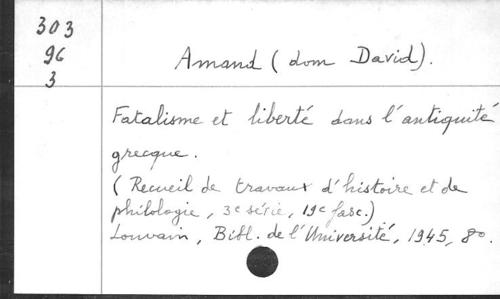 303
96
3
Amand (dom David).
Fatalisme et liberté dans l'antiquité
grecque.
(Recueil de travaux d'histoire et de
philologie, 3e série, 19e fasc.)
Louvain, Bibl. de l'Université, 1945, 8°.